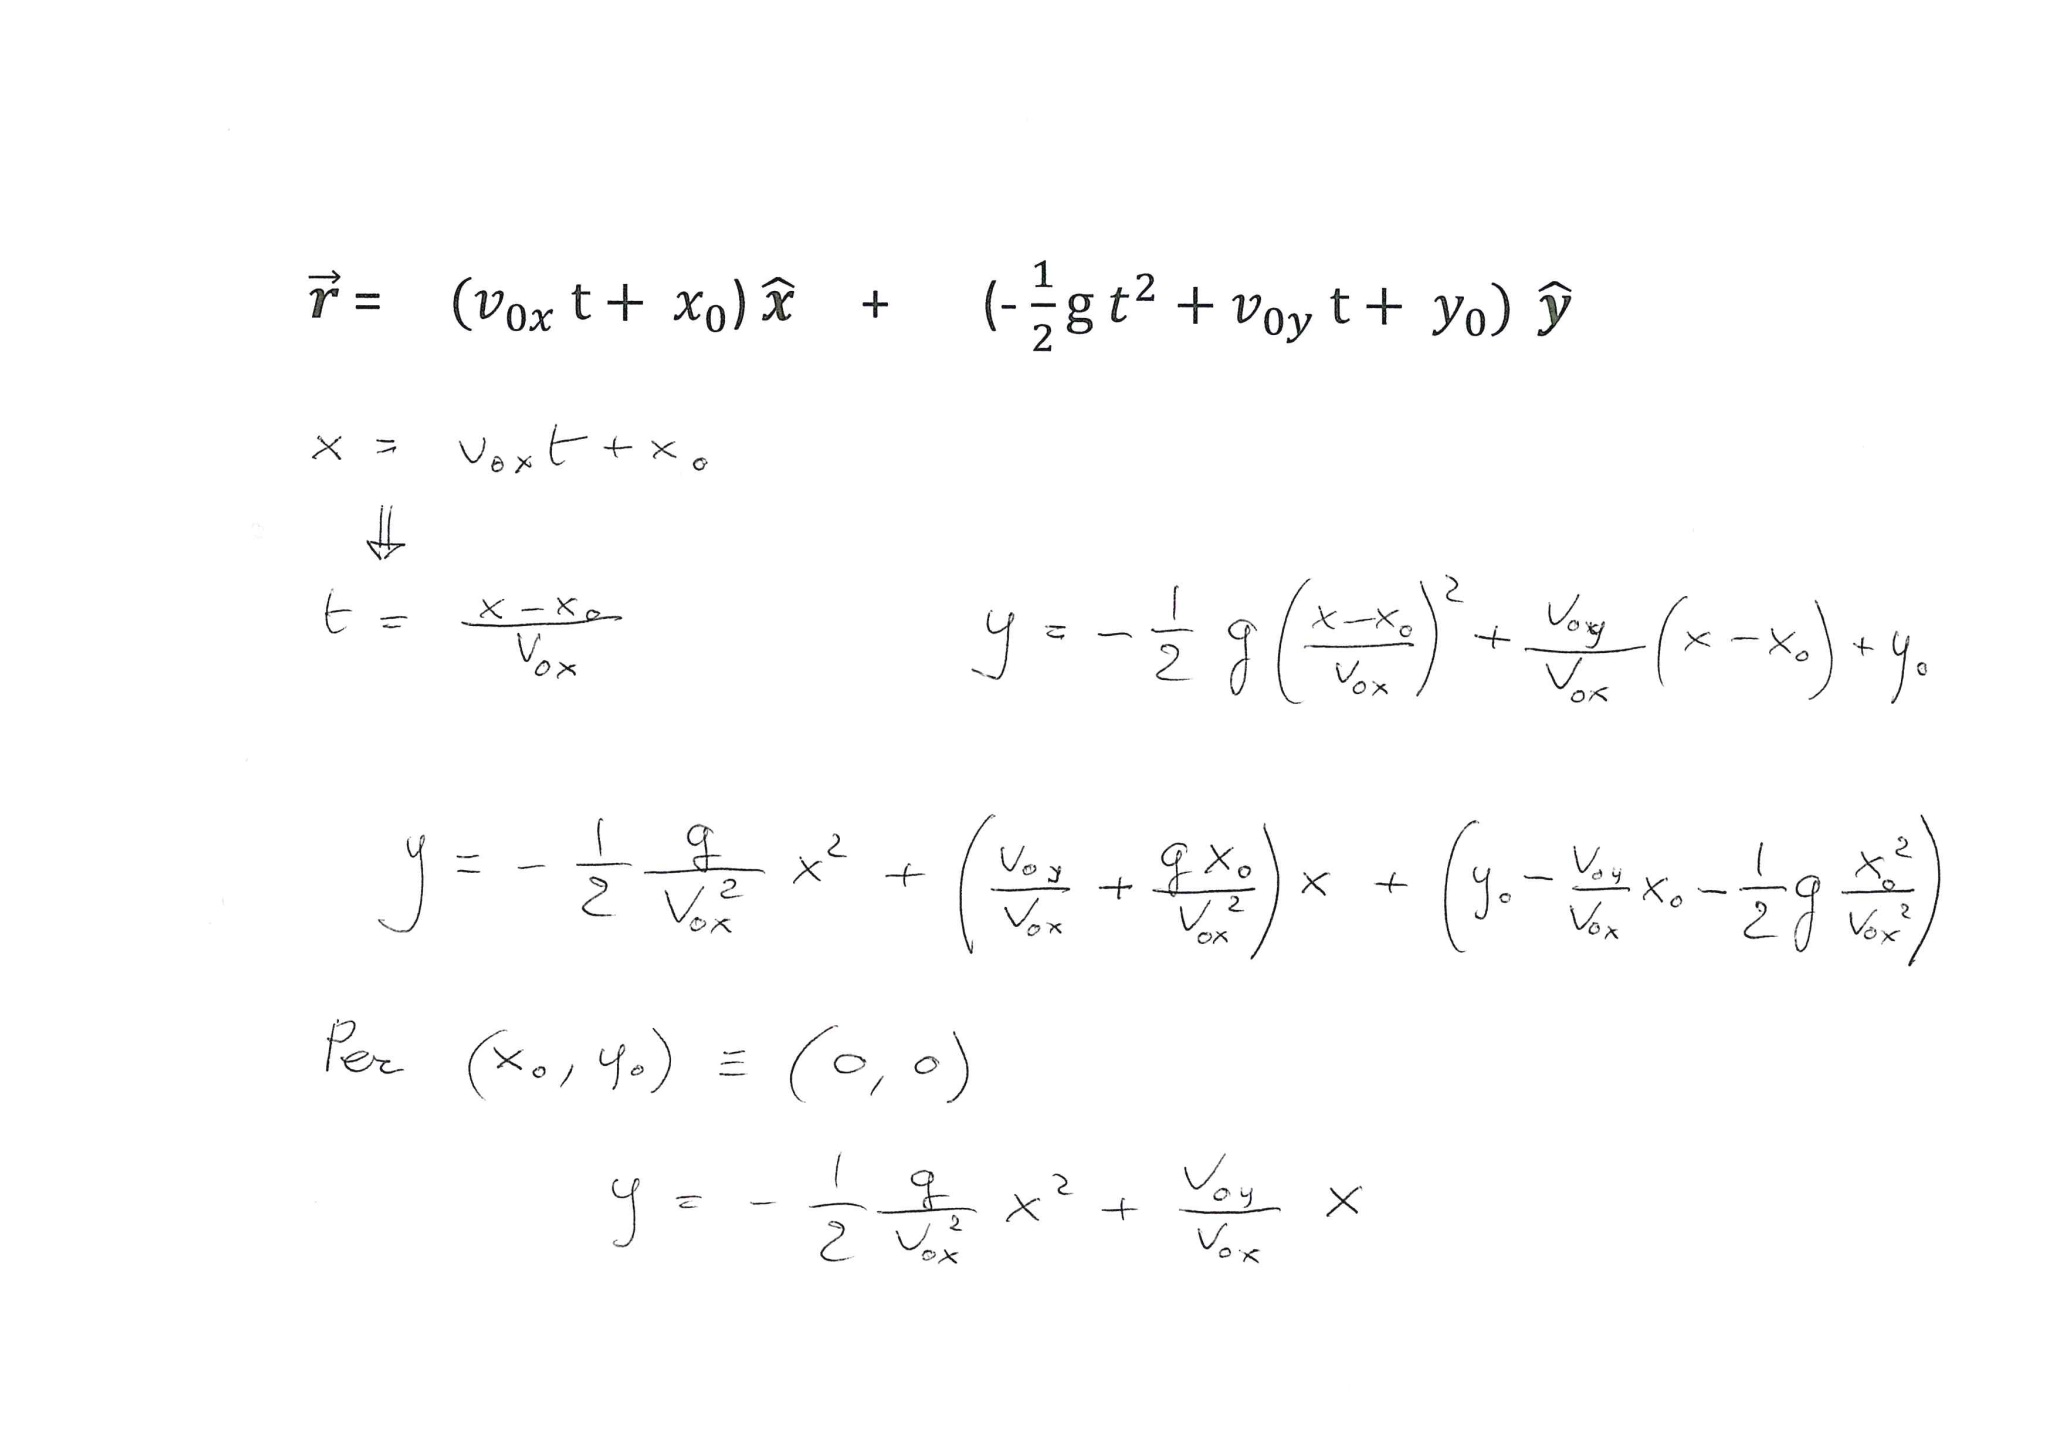 r⃗ = (v₀ₓ t + x₀) x̂ + (-½ g t² + v₀y t + y₀) ŷ
x = v₀ₓ t + x₀
⇓
t = (x - x₀)/v₀ₓ    y = - ½ g ((x - x₀)/v₀ₓ)² + v₀y/v₀ₓ (x - x₀) + y₀
y = - ½ g/v₀ₓ² x² + (v₀y/v₀ₓ + g x₀/v₀ₓ²) x + (y₀ - v₀y/v₀ₓ x₀ - ½ g x₀²/v₀ₓ²)
Per (x₀, y₀) ≡ (0, 0)
y = - ½ g/v₀ₓ² x² + v₀y/v₀ₓ x